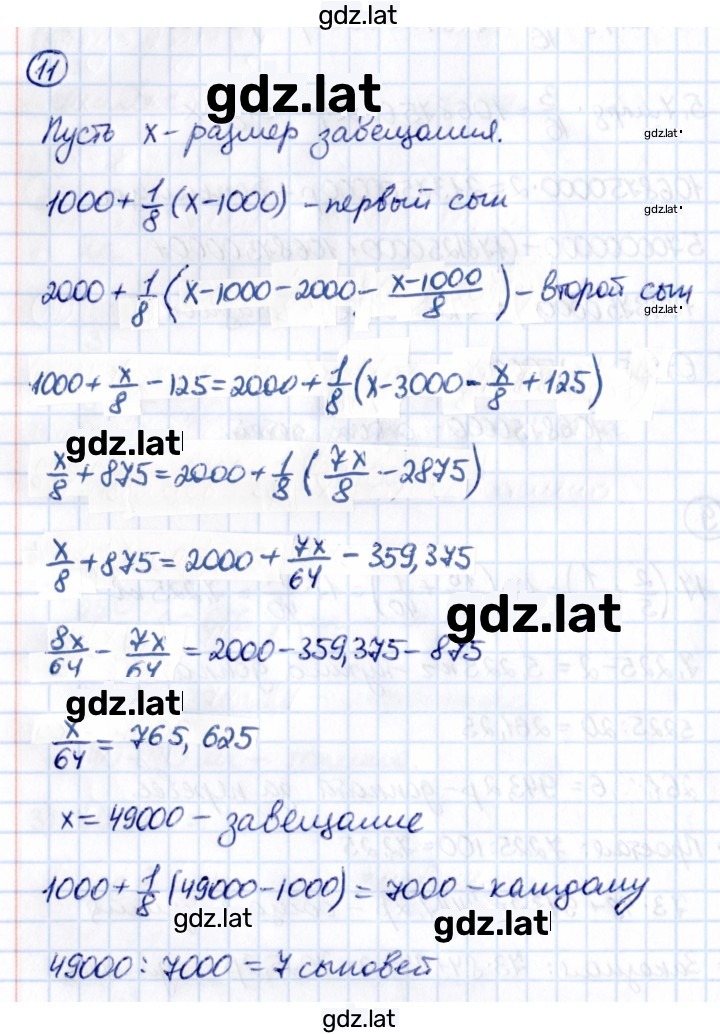 gdz.lat
11
gdz.lat
Пусть x - размер завещания.
gdz.lat
1000 + 1/8 (x - 1000) - первый сын
gdz.lat
2000 + 1/8 (x - 1000 - 2000 - (x - 1000)/8) - второй сын
gdz.lat
1000 + x/8 - 125 = 2000 + 1/8 (x - 3000 - x/8 + 125)
gdz.lat
x/8 + 875 = 2000 + 1/8 (7x/8 - 2875)
x/8 + 875 = 2000 + 7x/64 - 359,375
gdz.lat
8x/64 - 7x/64 = 2000 - 359,375 - 875
gdz.lat
x/64 = 765,625
x = 49000 - завещание
1000 + 1/8 (49000 - 1000) = 7000 - каждому
gdz.lat
gdz.lat
49000 : 7000 = 7 сыновей
gdz.lat